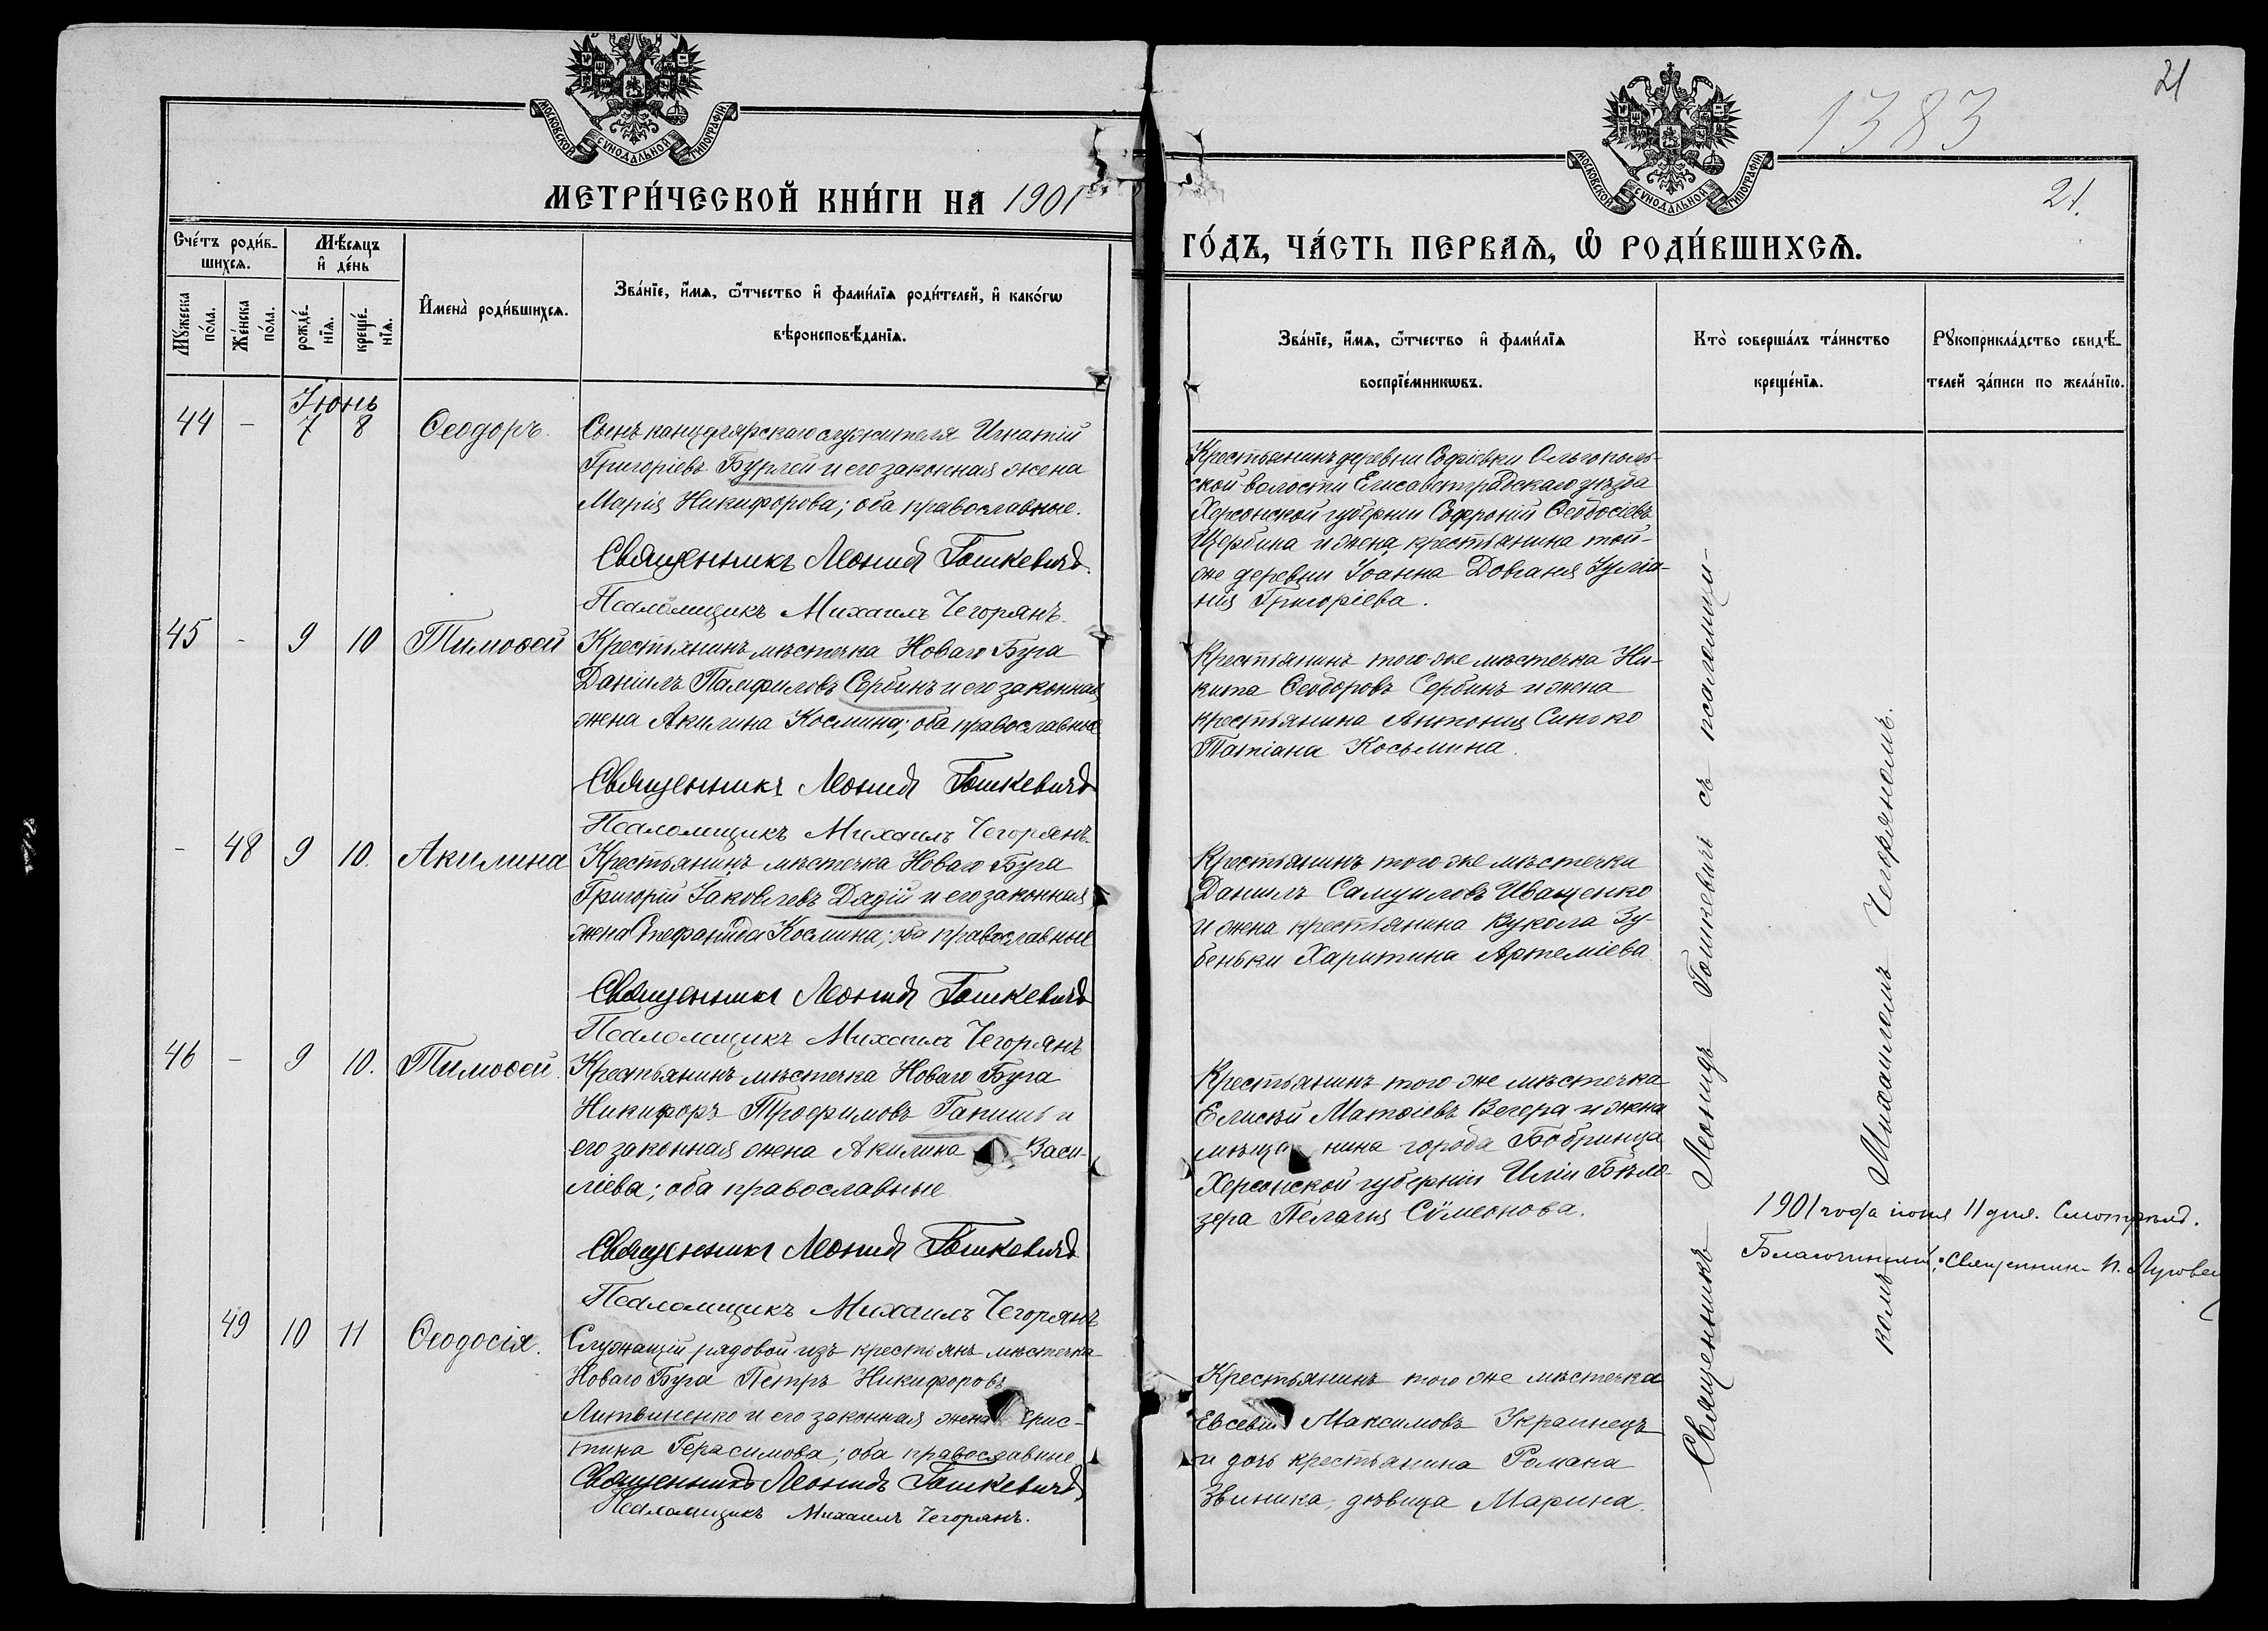 МОСКОВСКОЙ СѴНОДАЛЬНОЙ ТИПОГРАФІИ
МЕТРИ́ЧЕСКОЙ КНИ́ГИ НА 1901
Сче́тъ роди́в-
шихсѧ.
Мѣ́сѧцъ
и҆ де́нь
Мꙋ́жеска
по́ла.
Же́нска
по́ла.
рожде́-
нїѧ.
креще́-
нїѧ.
И҆мена̀ роди́вшихсѧ.
Зва́нїе, и҆́мѧ, ѻ҆́тчество и҆ фами́лїѧ роди́телей, и҆ како́гѡ
вѣроисповѣ́данїѧ.
Іюнь
44 - 7 8 Ѳеодоръ.
Сынъ канцелярскаго служителя Игнатій
Григоріевъ Бурлей и его законная жена
Марія Никифорова; оба православные.
Священникъ Леонидъ Гошкевичъ.
Псаломщикъ Михаилъ Чегорянъ.
45 - 9 10 Тимоѳей
Крестьянинъ мѣстечка Новаго Буга
Даніилъ Памфиловъ Сербинъ и его законная
жена Акилина Космина; оба православные
Священникъ Леонидъ Гошкевичъ
Псаломщикъ Михаилъ Чегорянъ.
- 48 9 10. Акилина
Крестьянинъ мѣстечка Новаго Буга
Григорій Іаковлевъ Дядій и его законная
жена Стефанида Космина; оба православные
Священникъ Леонидъ Гошкевичъ
Псаломщикъ Михаилъ Чегорянъ
46 - 9 10. Тимоѳей.
Крестьянинъ мѣстечка Новаго Буга
Никифоръ Трофимовъ Гапишь и
его законная жена Акилина Васи-
ліева; оба православные
Священникъ Леонидъ Гошкевичъ
Псаломщикъ Михаилъ Чегорянъ
49 10 11 Ѳеодосія.
Служащій рядовой изъ крестьянъ мѣстечка
Новаго Буга Петръ Никифоровъ
Литвиненко и его законная жена Хрис-
тина Герасимова; оба православные
Священникъ Леонидъ Гошкевичъ
Псаломщикъ Михаилъ Чегорянъ.
21
1383
МОСКОВСКОЙ СѴНОДАЛЬНОЙ ТИПОГРАФІИ
21.
ГО́ДЪ, ЧА́СТЬ ПЕРВАѦ, Ѡ҆ РОДИ́ВШИХСѦ.
Зва́нїе, и҆́мѧ, ѻ҆́тчество и҆ фами́лїѧ
воспрїе́мникѡвъ.
Кто̀ соверша́лъ та́инство
креще́нїѧ.
Рꙋкоприкла́дство свидѣ́-
телей за́писи по жела́нїю.
Крестьянинъ деревни Софіевки Ольгополь-
ской волости Елисаветградскаго уѣзда
Херсонской губерніи Софроній Ѳеодосіевъ
Щербина и жена крестьянина той-
же деревни Іоанна Довганя Іуліа-
нія Григоріева.
Крестьянинъ того-же мѣстечка Ни-
кита Ѳеодоровъ Сербинъ и жена
крестьянина Антонія Синько
Татіана Косьмина.
Крестьянинъ того же мѣстечка
Даніилъ Самуиловъ Иващенко
и жена крестьянина Вукола Зу-
беньки Харитина Артеміева
Крестьянинъ того-же мѣстечка
Елисѣй Матѳіевъ Вегера и жена
мѣщанина города Бобринца
Херсонской губерніи Иліи Бѣло-
зера Пелагія Сѵмеонова.
Крестьянинъ того же мѣстечка
Евсевій Максимовъ Украинецъ
и дочь крестьянина Романа
Звиника, дѣвица Марина.
Священникъ Леонидъ Гошкевичъ съ псаломщи-
комъ Михаиломъ Чегоряномъ.
1901 года іюня 11 дня. Смотрѣлъ.
Благочинный, Священникъ